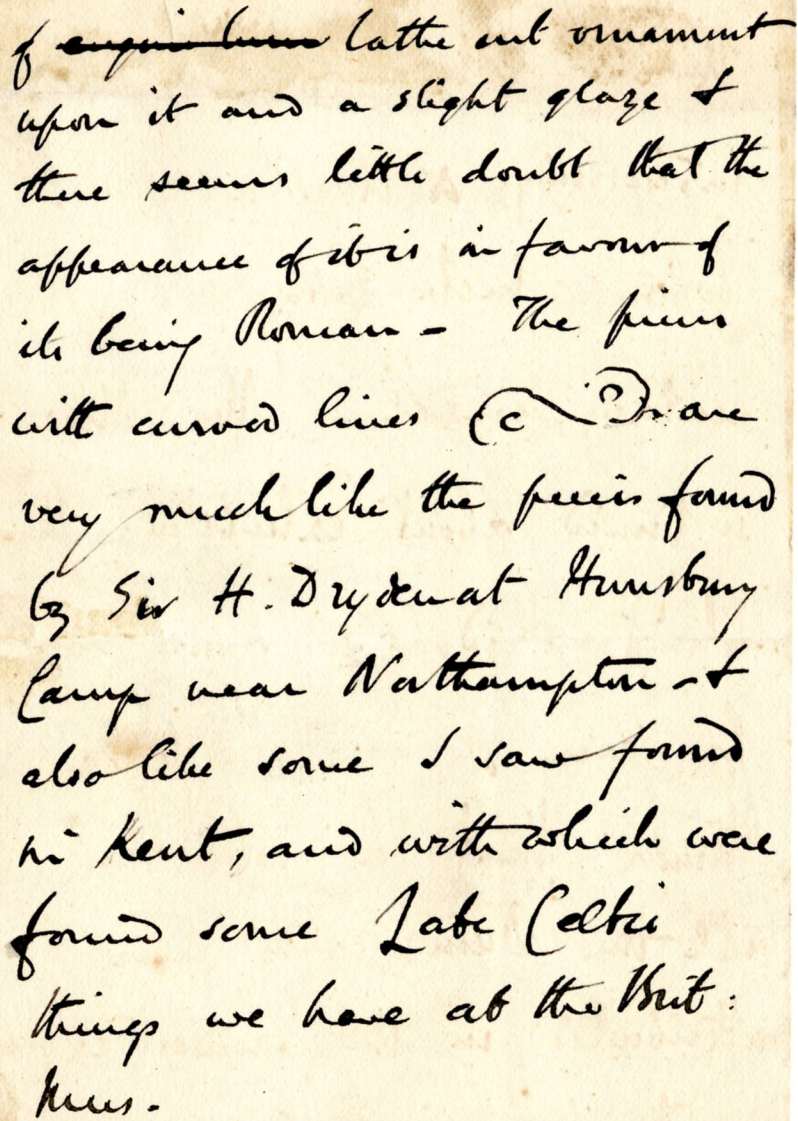 of lathe cut ornament
upon it and a slight glaze &
there seems little doubt that the
appearance of it is in favour of
its being Roman - The pieces
with curved lines are
very much like the pieces found
by Sir H. Dryden at Hunsbury
Camp near Northampton - &
also like some I saw found
in Kent, and with which were
found some Late Celtic
things we have at the Brit:
Mus.